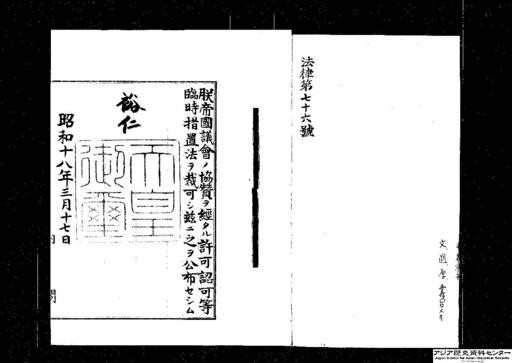 法律第七十六號
朕帝國議會ノ協贊ヲ經タル許可認可等
臨時措置法ヲ裁可シ茲ニ之ヲ公布セシム
裕仁
天皇御璽
昭和十八年三月十七日
アジア歴史資料センター
Japan Center for Asian Historical Records